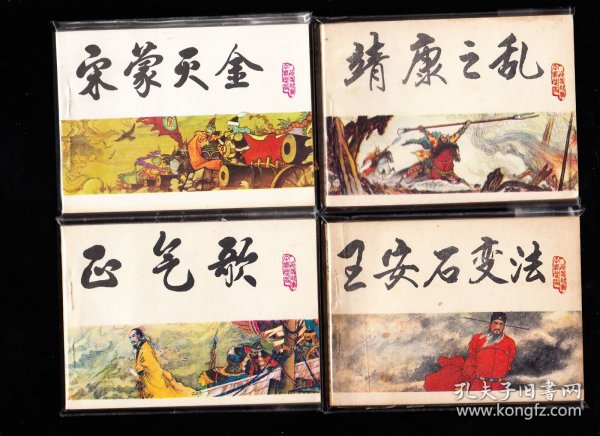 宋蒙灭金
靖康之乱
正气歌
王安石变法
孔夫子旧书网
www.kongfz.com